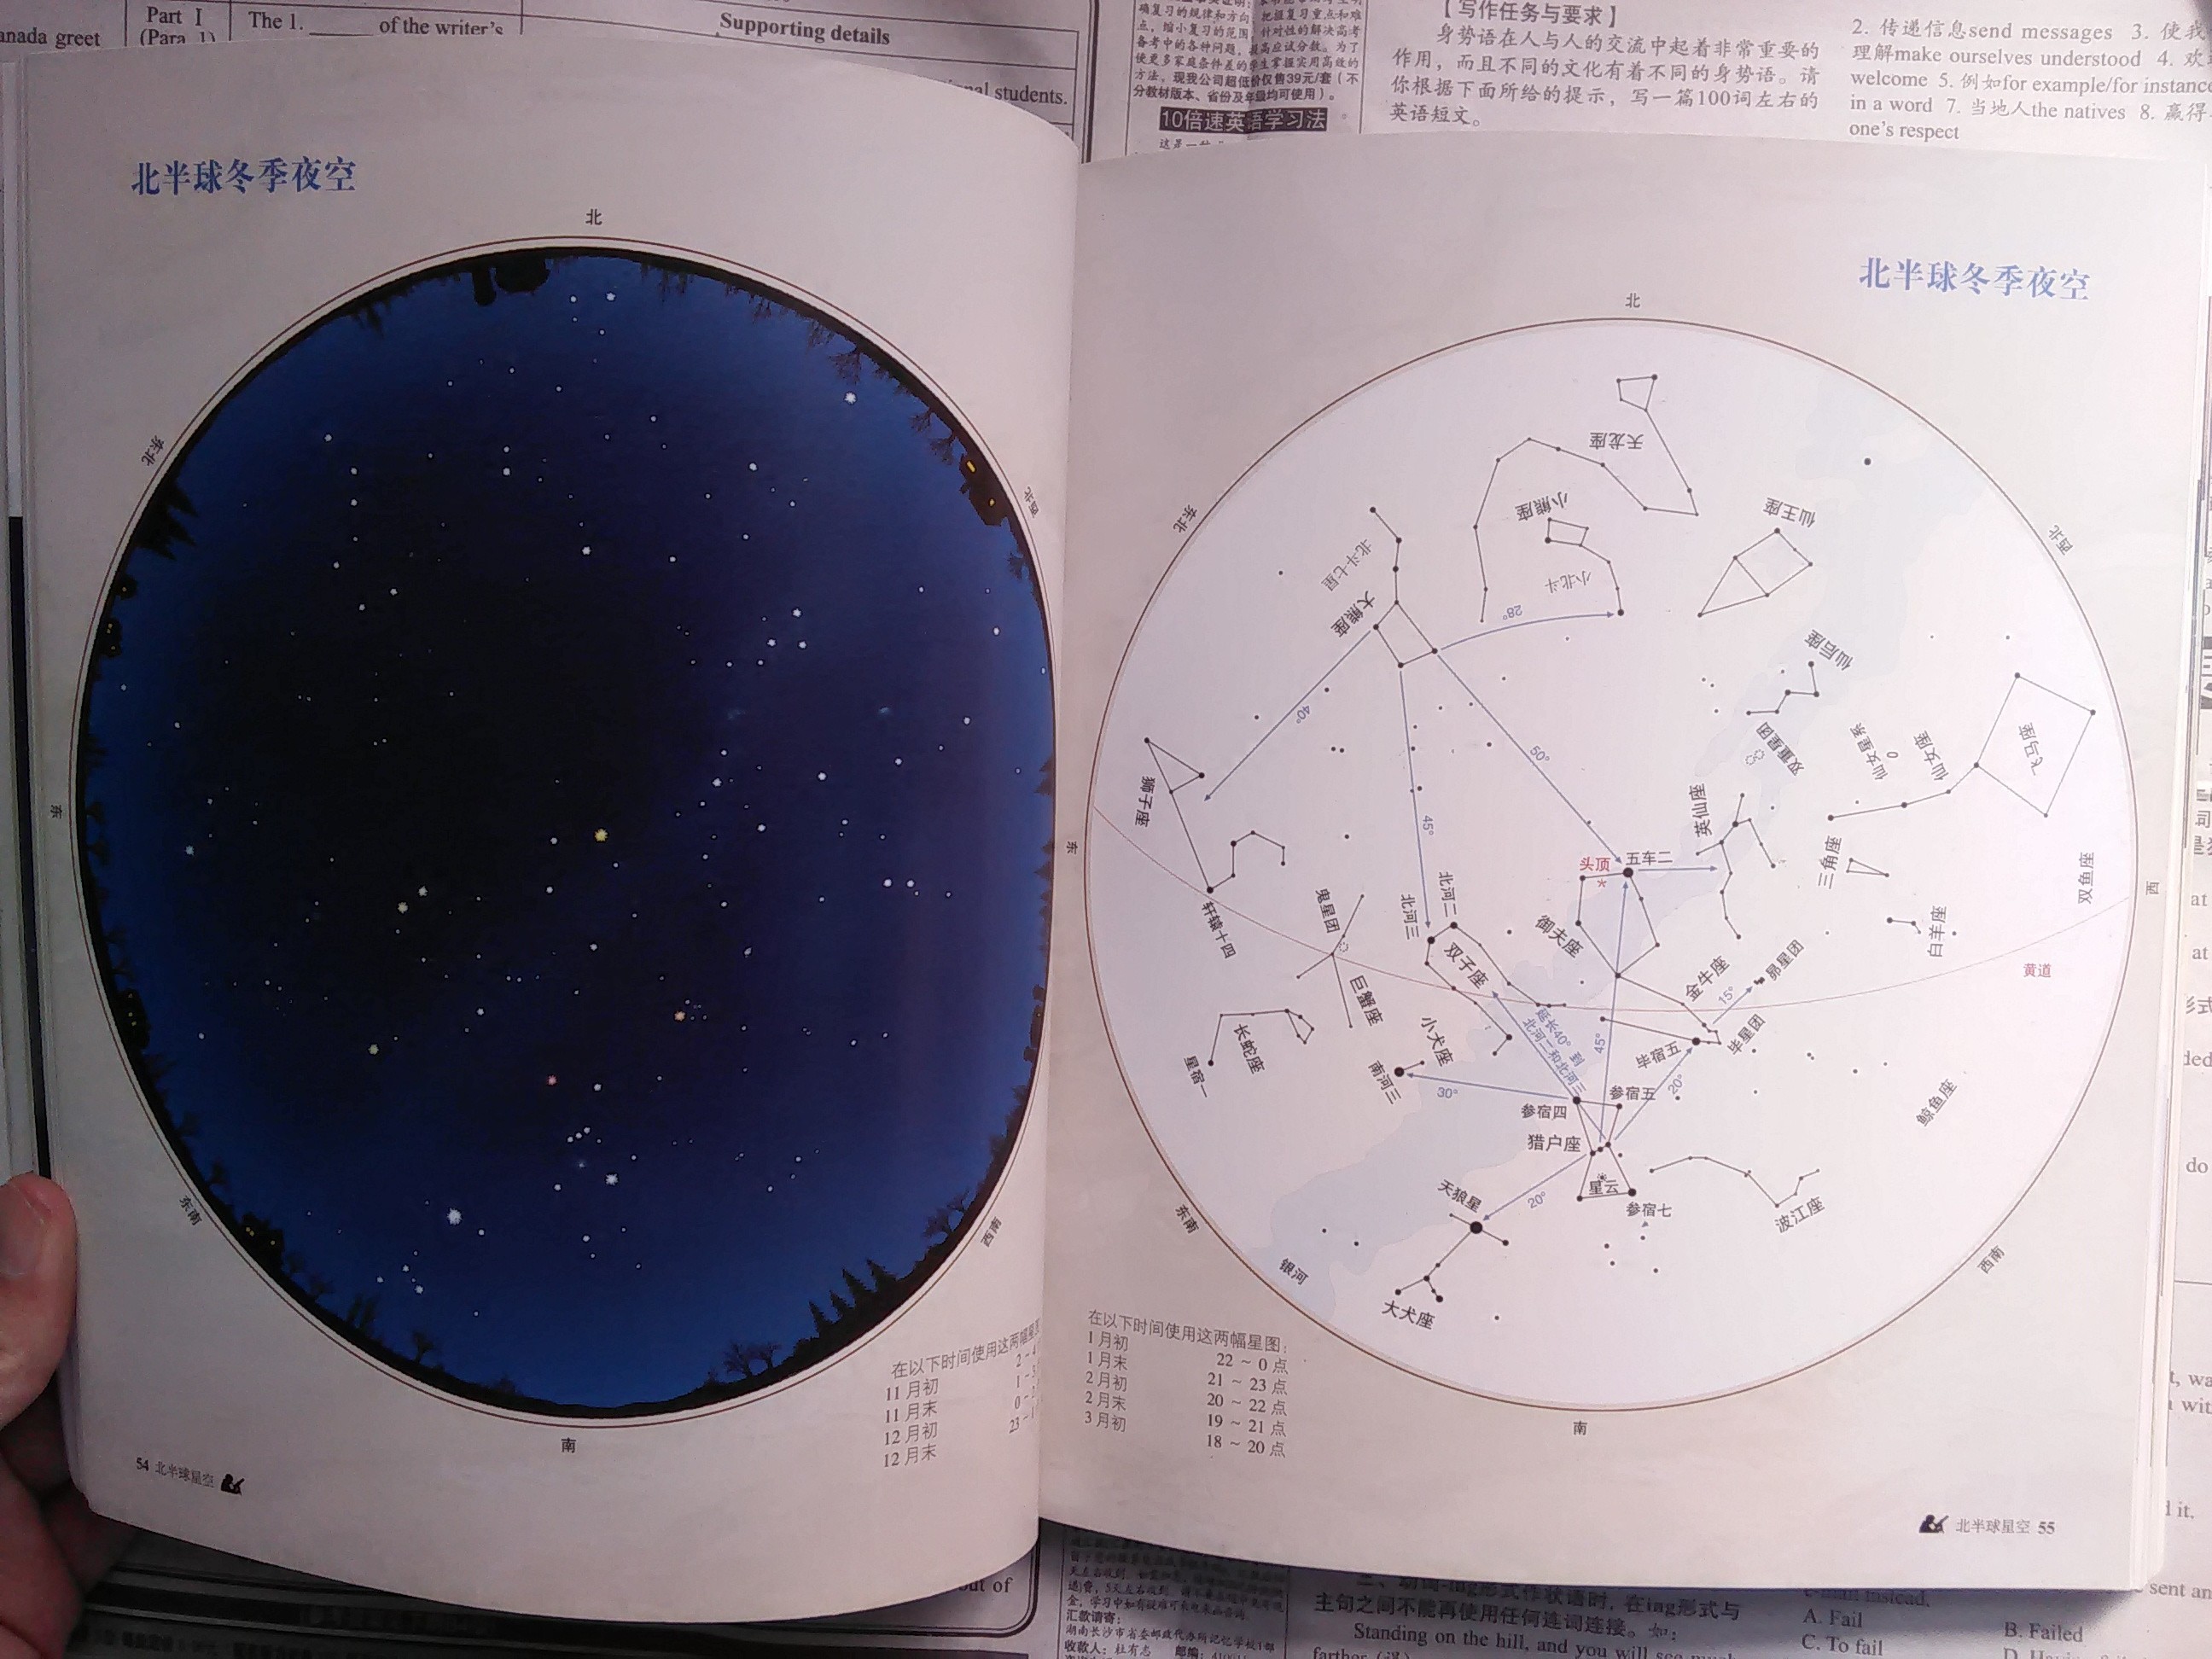 anada greet
Part I
(Para. 1)
The 1. ______ of the writer's
Supporting details
nal students.
确复习的规律和方向
把握复习重点和难
点，缩小复习的范围
针对性的解决高考
备考中的各种问题，
提高应试分数。为了
使更多家庭条件差的学生掌握实用高效的
方法，现我公司超低价仅售39元/套（不
分教材版本、省份及年级均可使用）。
10倍速英语学习法
【写作任务与要求】
身势语在人与人的交流中起着非常重要的
作用，而且不同的文化有着不同的身势语。请
你根据下面所给的提示，写一篇100词左右的
英语短文。
2. 传递信息send messages 3. 使我
理解make ourselves understood 4. 欢
welcome 5. 例如for example/for instance
in a word 7. 当地人the natives 8. 赢得
one's respect
北半球冬季夜空
北
东北
西北
东
东南
西南
南
在以下时间使用这两幅星图
11月初
11月末
12月初
12月末
2-4
1-3
0-2
23-1
54 北半球星空
北半球冬季夜空
北
天龙座
小熊座
仙王座
东北
西北
北斗七星
小北斗
大熊座
28°
仙后座
40°
50°
双重星团
仙女星系
仙女座
飞马座
狮子座
45°
英仙座
头顶
五车二
三角座
双鱼座
东
西
轩辕十四
鬼星团
北河三
北河二
双子座
御夫座
白羊座
金牛座
昴星团
黄道
15°
巨蟹座
长蛇座
星宿一
小犬座
南河三
延长40°到
北河二和北河三
45°
毕宿五
毕星团
30°
20°
参宿四
参宿五
猎户座
鲸鱼座
星云
天狼星
20°
参宿七
波江座
东南
西南
银河
大犬座
南
在以下时间使用这两幅星图：
1月初 22 ~ 0点
1月末 21 ~ 23点
2月初 20 ~ 22点
2月末 19 ~ 21点
3月初 18 ~ 20点
北半球星空 55
out of
汇款请寄：
湖南长沙市省委邮政代办所记忆学校1部
收款人：杜有志
主句之间不能再使用任何连词连接。如：
Standing on the hill, and you will see
A. Fail
B. Failed
C. To fail